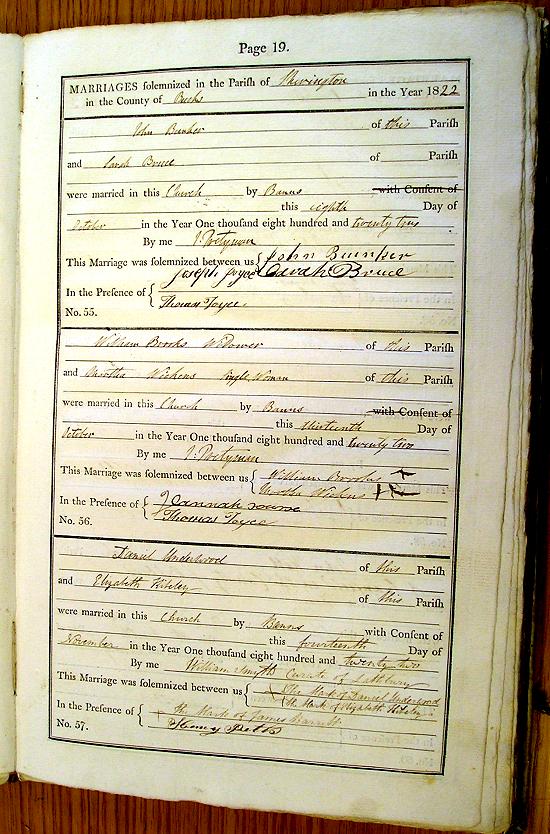 Page 19.
MARRIAGES solemnized in the Parish of Sherington
in the County of Bucks in the Year 1822
John Bunker of this Parish
and Sarah Bruce of Parish
were married in this Church by Banns with Consent of
this eighth Day of
October in the Year One thousand eight hundred and twenty two
By me J. Pretyman
This Marriage was solemnized between us { John Bunker
Sarah Bruce
In the Presence of { Joseph Joyce
Thomas Joyce
No. 55.
William Brooks Widower of this Parish
and Martha Wickens Single Woman of this Parish
were married in this Church by Banns with Consent of
this Day of
October in the Year One thousand eight hundred and twenty two
By me J. Pretyman
This Marriage was solemnized between us { William Brooks
Martha Wickens
In the Presence of { Hannah
Thomas Joyce
No. 56.
Daniel Underwood of this Parish
and Elizabeth of this Parish
were married in this Church by Banns with Consent of
this fourteenth Day of
November in the Year One thousand eight hundred and twenty two
By me William Smyth Curate of Lathbury
This Marriage was solemnized between us { The Mark of Daniel Underwood
the Mark of Elizabeth
In the Presence of { the Mark of James Barrett
Henry
No. 57.